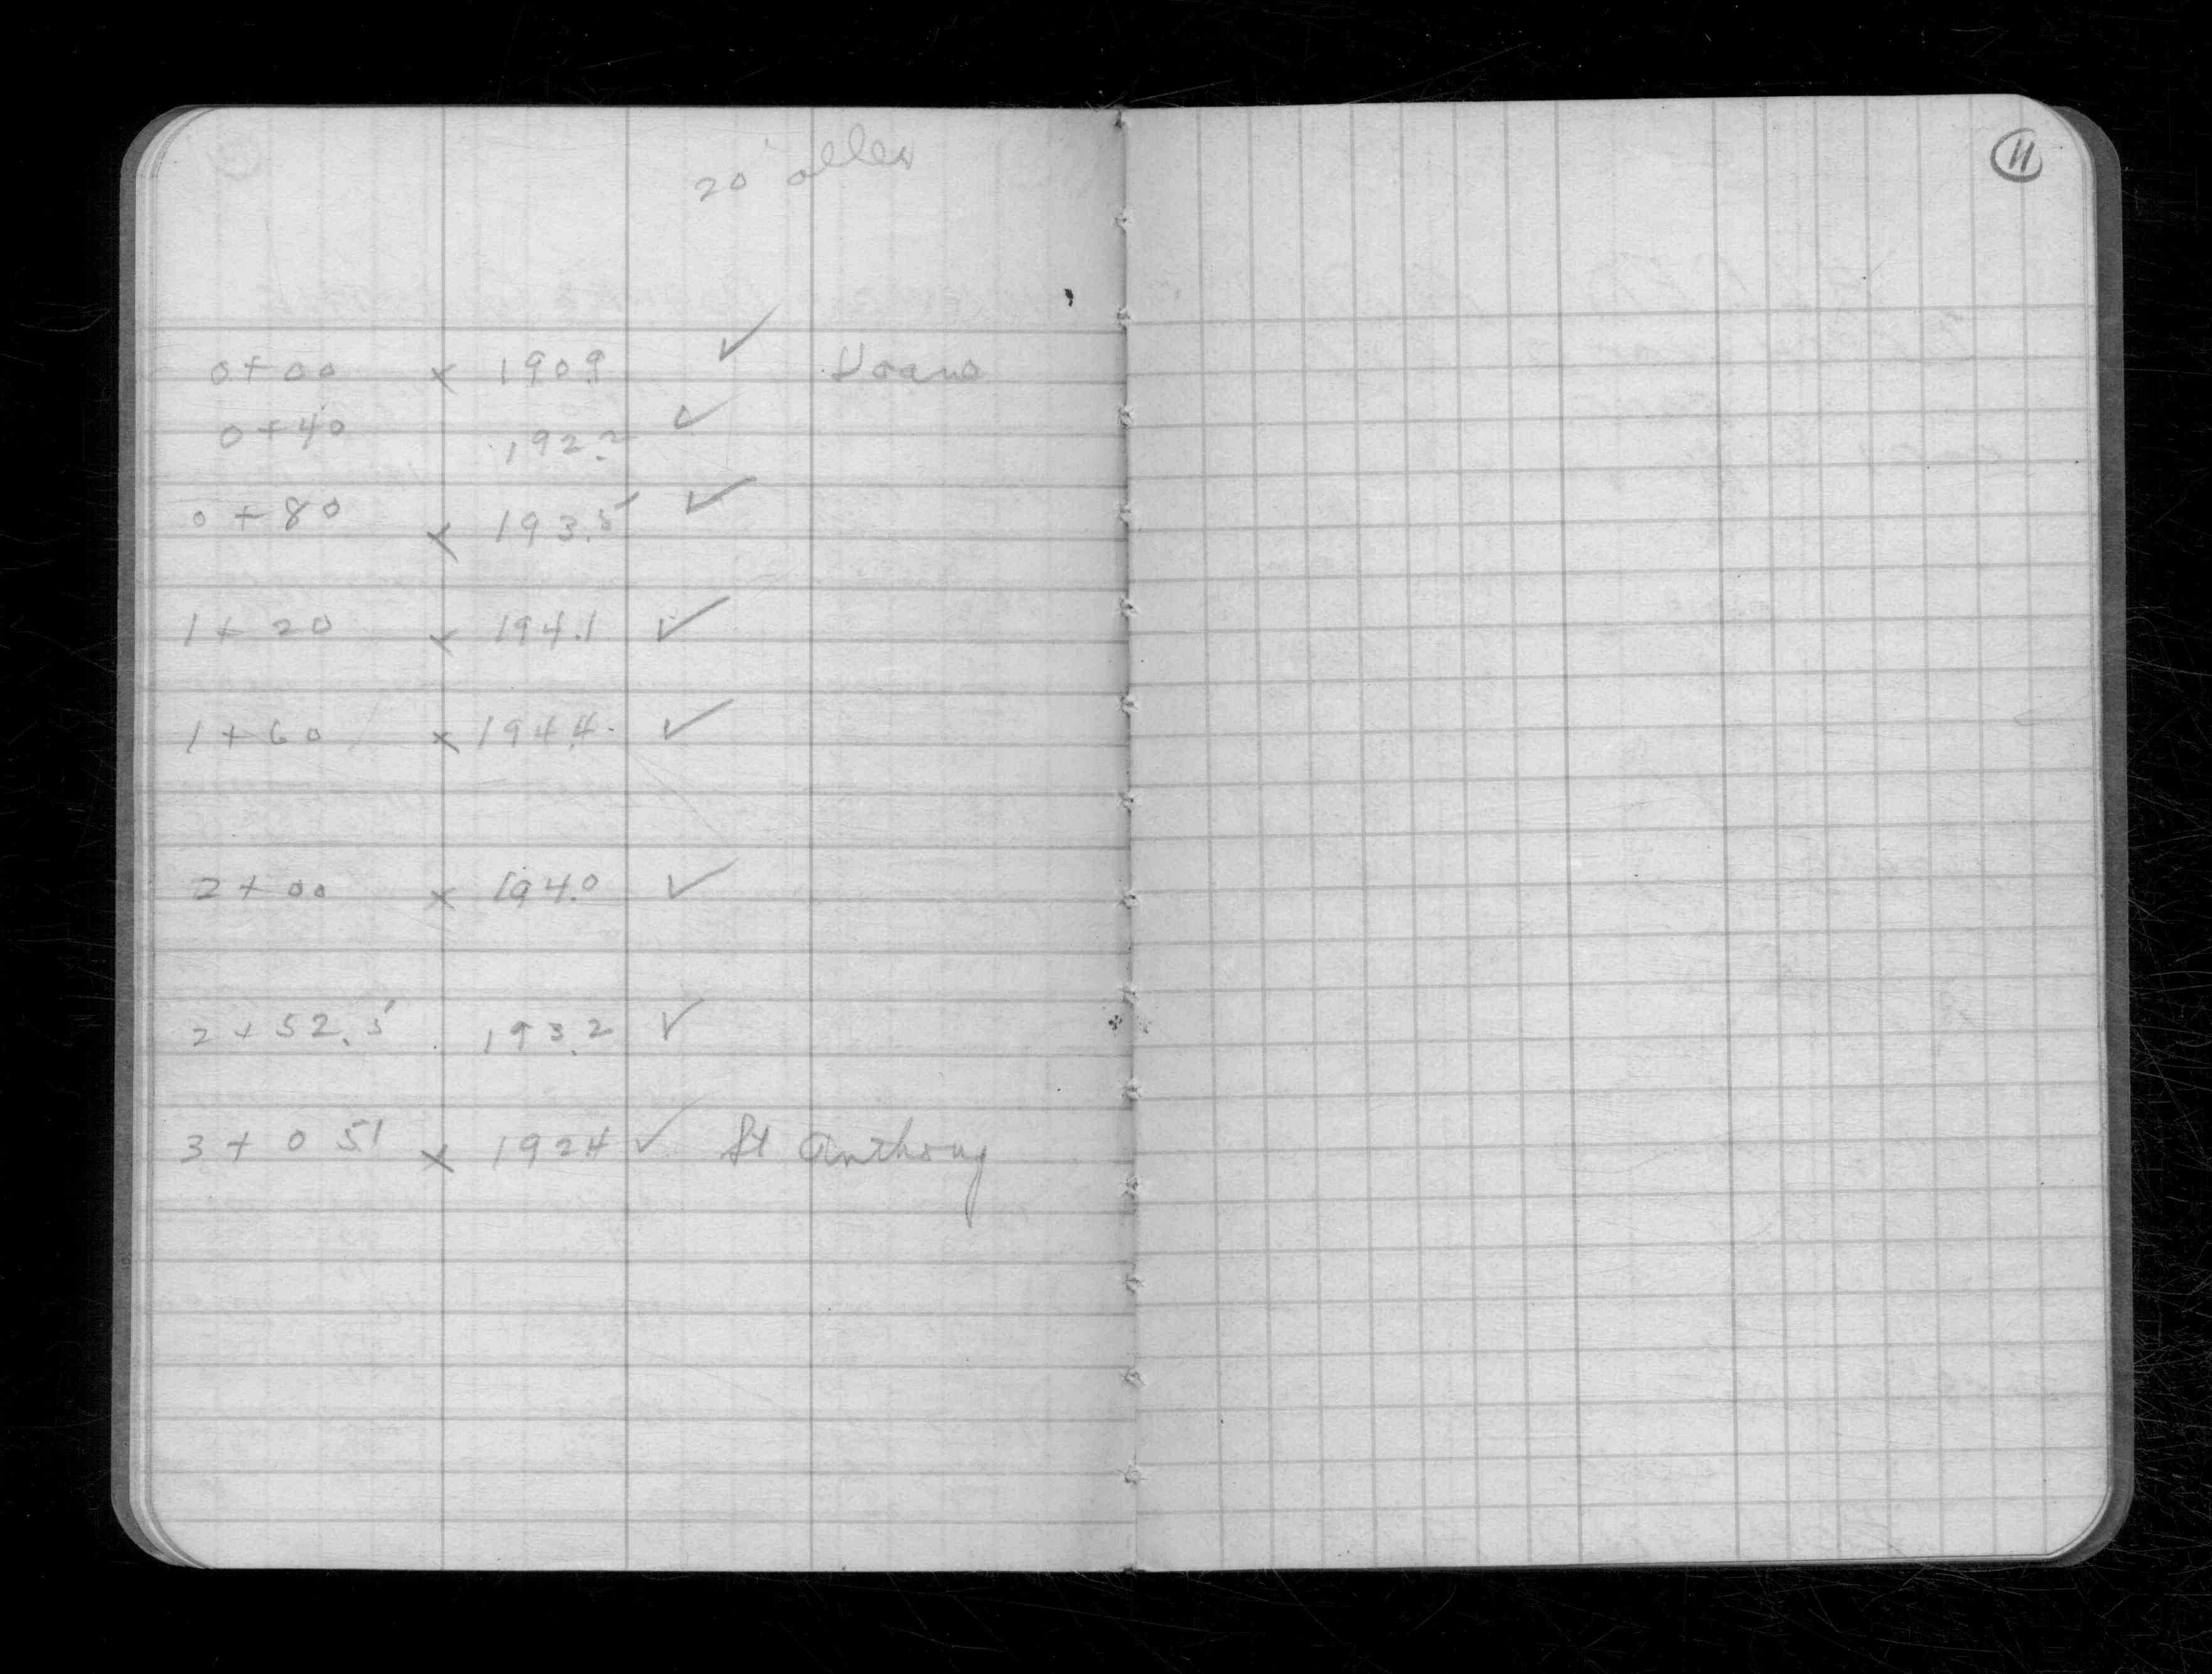 20' alley
0+00 x 190.9 ✓
0+40 192.2 ✓
0+80 x 193.5 ✓
1+20 x 194.1 ✓
1+60 x 194.4 ✓
2+00 x 194.0 ✓
2+52.5 193.2 ✓
3+051 x 192.4 ✓ St Anthony
11